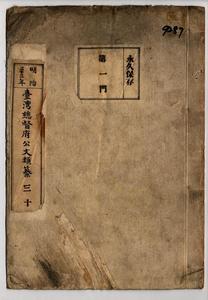 永久保存
第一門
明治
臺灣總督府公文類纂 三十